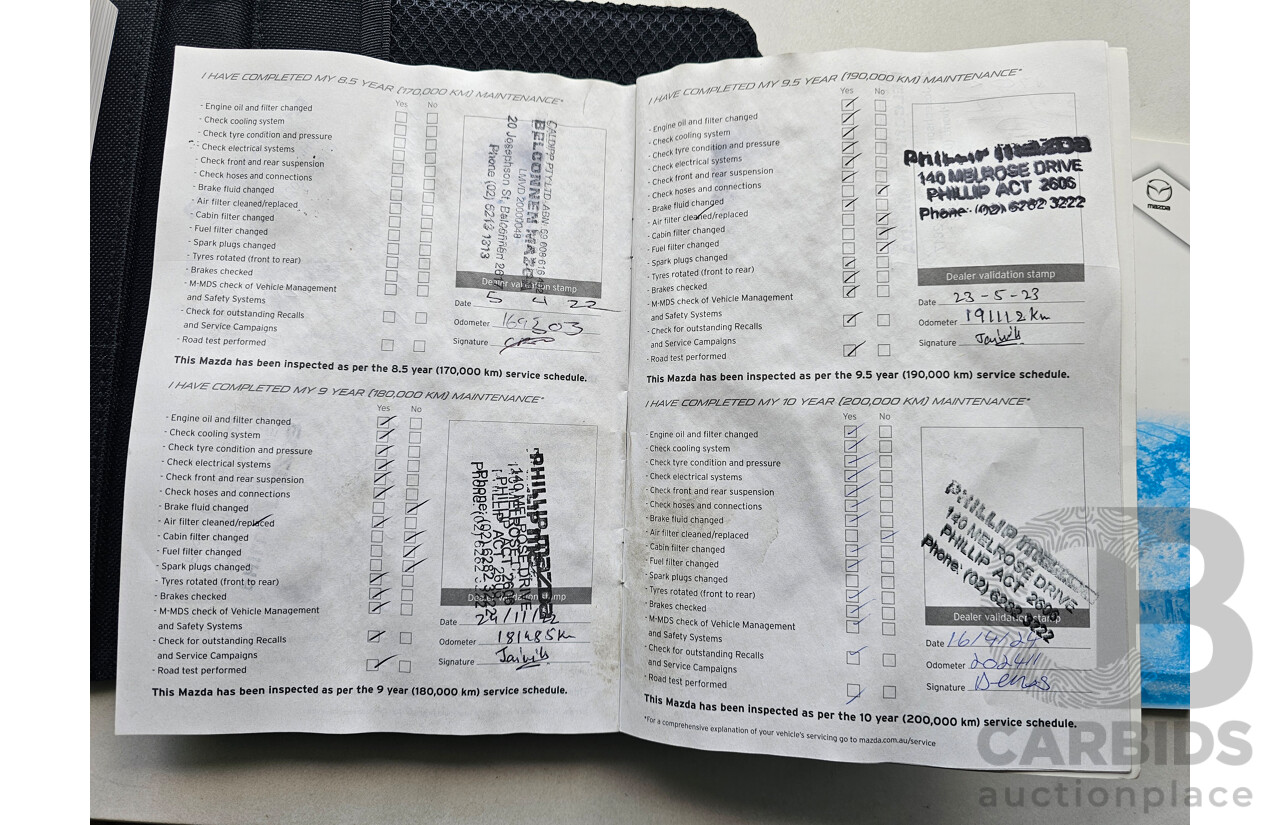 I HAVE COMPLETED MY 8.5 YEAR (170,000 KM) MAINTENANCE*
Yes No
- Engine oil and filter changed
- Check cooling system
- Check tyre condition and pressure
- Check electrical systems
- Check front and rear suspension
- Check hoses and connections
- Brake fluid changed
- Air filter cleaned/replaced
- Cabin filter changed
- Fuel filter changed
- Spark plugs changed
- Tyres rotated (front to rear)
- Brakes checked
- M-MDS check of Vehicle Management
and Safety Systems
- Check for outstanding Recalls
and Service Campaigns
- Road test performed
CALDIPP PTY LTD ABN: 69 008 616
BELCONNEN MAZDA
LMVD 20000048
20 Josephson St, Belconnen
Phone (02) 6213 1313
Dealer validation stamp
Date 5 4 22
Odometer 169803
Signature
This Mazda has been inspected as per the 8.5 year (170,000 km) service schedule.
I HAVE COMPLETED MY 9 YEAR (180,000 KM) MAINTENANCE*
Yes No
- Engine oil and filter changed
- Check cooling system
- Check tyre condition and pressure
- Check electrical systems
- Check front and rear suspension
- Check hoses and connections
- Brake fluid changed
- Air filter cleaned/replaced
- Cabin filter changed
- Fuel filter changed
- Spark plugs changed
- Tyres rotated (front to rear)
- Brakes checked
- M-MDS check of Vehicle Management
and Safety Systems
- Check for outstanding Recalls
and Service Campaigns
- Road test performed
PHILLIP MAZDA
140 MELROSE DRIVE
PHILLIP ACT 2606
Phone: (02) 6282 3222
Dealer validation stamp
Date 24/11/22
Odometer 181485km
Signature
This Mazda has been inspected as per the 9 year (180,000 km) service schedule.
I HAVE COMPLETED MY 9.5 YEAR (190,000 KM) MAINTENANCE*
Yes No
- Engine oil and filter changed
- Check cooling system
- Check tyre condition and pressure
- Check electrical systems
- Check front and rear suspension
- Check hoses and connections
- Brake fluid changed
- Air filter cleaned/replaced
- Cabin filter changed
- Fuel filter changed
- Spark plugs changed
- Tyres rotated (front to rear)
- Brakes checked
- M-MDS check of Vehicle Management
and Safety Systems
- Check for outstanding Recalls
and Service Campaigns
- Road test performed
Phillip mazda
140 MELROSE DRIVE
PHILLIP ACT 2606
Phone: (02) 6282 3222
Dealer validation stamp
Date 23-5-23
Odometer 191112km
Signature
This Mazda has been inspected as per the 9.5 year (190,000 km) service schedule.
I HAVE COMPLETED MY 10 YEAR (200,000 KM) MAINTENANCE*
Yes No
- Engine oil and filter changed
- Check cooling system
- Check tyre condition and pressure
- Check electrical systems
- Check front and rear suspension
- Check hoses and connections
- Brake fluid changed
- Air filter cleaned/replaced
- Cabin filter changed
- Fuel filter changed
- Spark plugs changed
- Tyres rotated (front to rear)
- Brakes checked
- M-MDS check of Vehicle Management
and Safety Systems
- Check for outstanding Recalls
and Service Campaigns
- Road test performed
PHILLIP mazda
140 MELROSE DRIVE
PHILLIP ACT 2606
Phone: (02) 6282 3222
Dealer validation stamp
Date 16/4/24
Odometer 202411
Signature
This Mazda has been inspected as per the 10 year (200,000 km) service schedule.
*For a comprehensive explanation of your vehicle's servicing go to mazda.com.au/service
mazda
CARBIDS
auctionplace